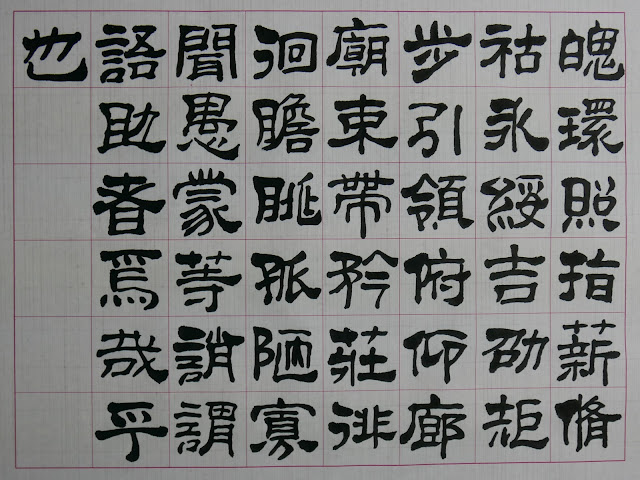 魄環照指薪脩
祜永綏吉劭矩
步引領俯仰廊
廟束帶矜莊徘
徊瞻眺孤陋寡
聞愚蒙等誚謂
語助者焉哉乎
也